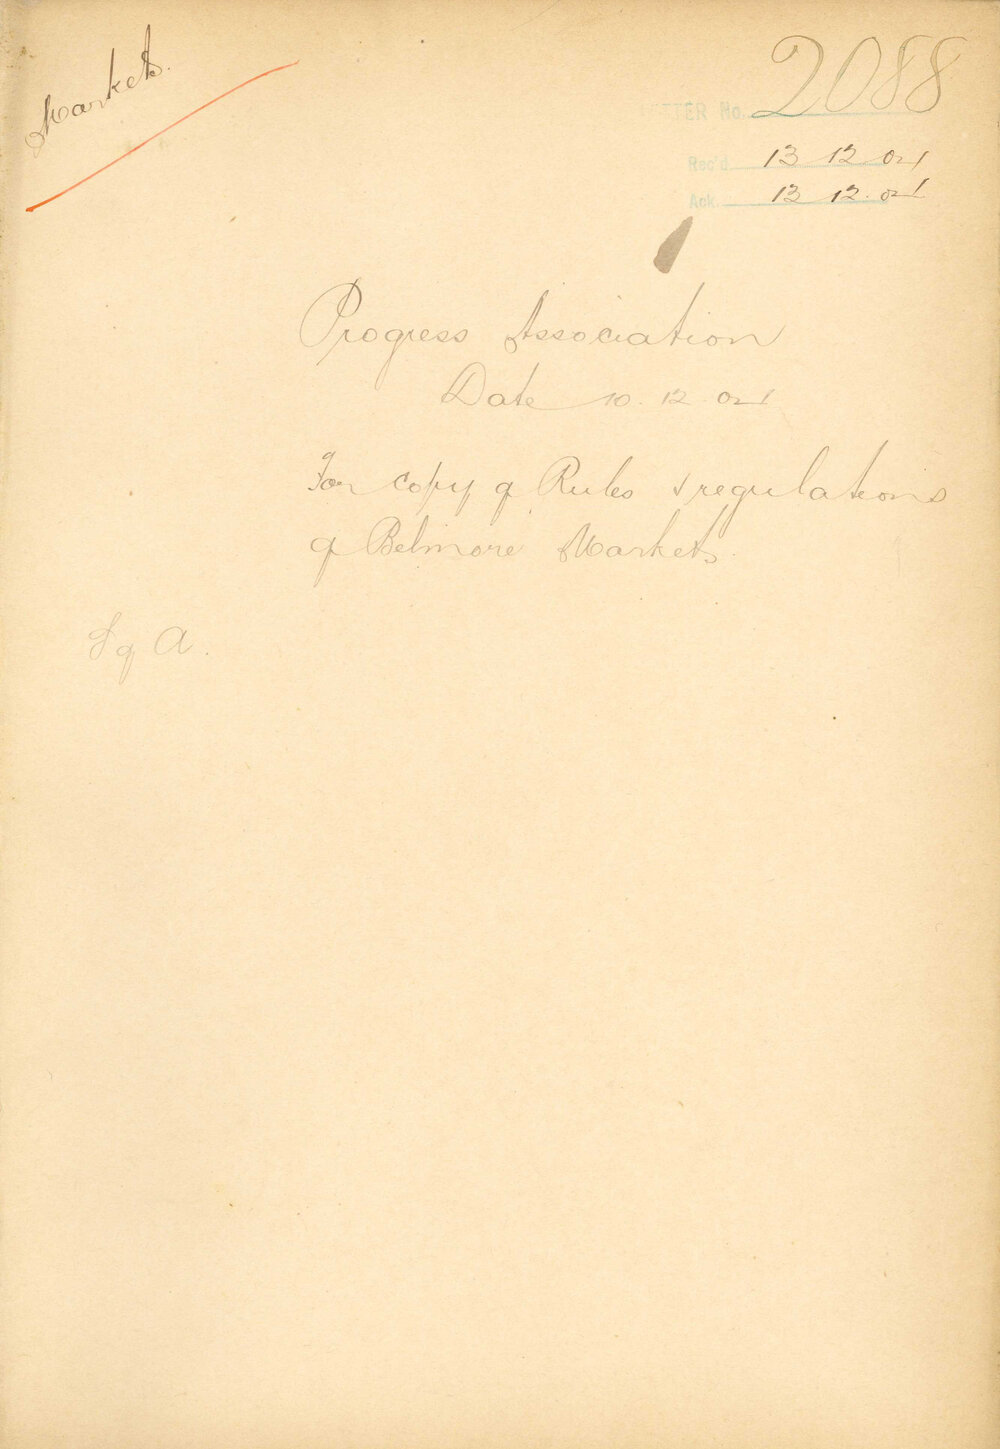 Markets.
LETTER No. 2088
Rec'd 13 12 01
Ack. 13 12. 01
Progress Association
Date 10. 12. 01
For copy of Rules & regulations
of Belmore Markets.